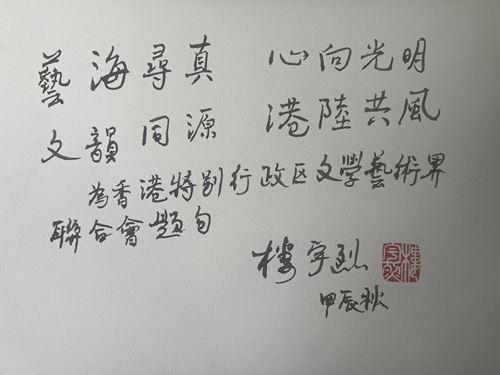 藝海尋真 心向光明
文韻同源 港陸共風
為香港特别行政区文學藝術界
聯合會題句
樓宇烈
樓宇烈
甲辰秋